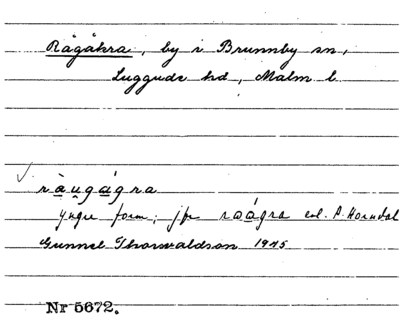 Rågåkra, by i Brunnby sn,
Luggude hd, Malm l.
√ ràu̯gágra
yngre form; jfr roágra enl. P. Horndal
Gunnel Thorwaldson 1945
Nr 5672.